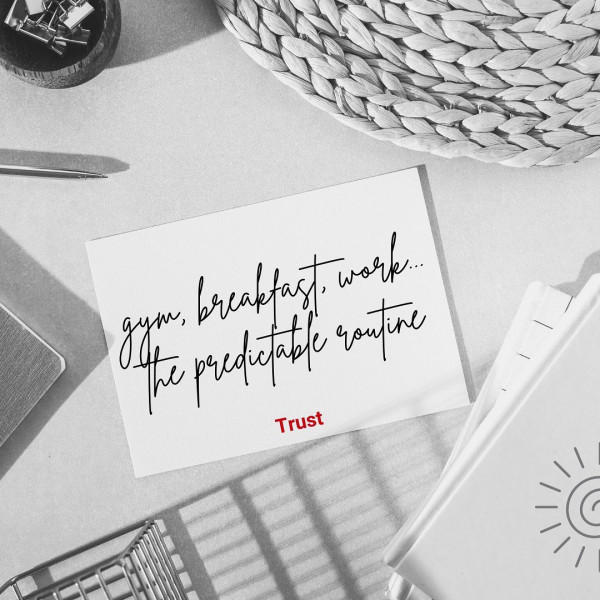 gym, breakfast, work...
the predictable routine
Trust